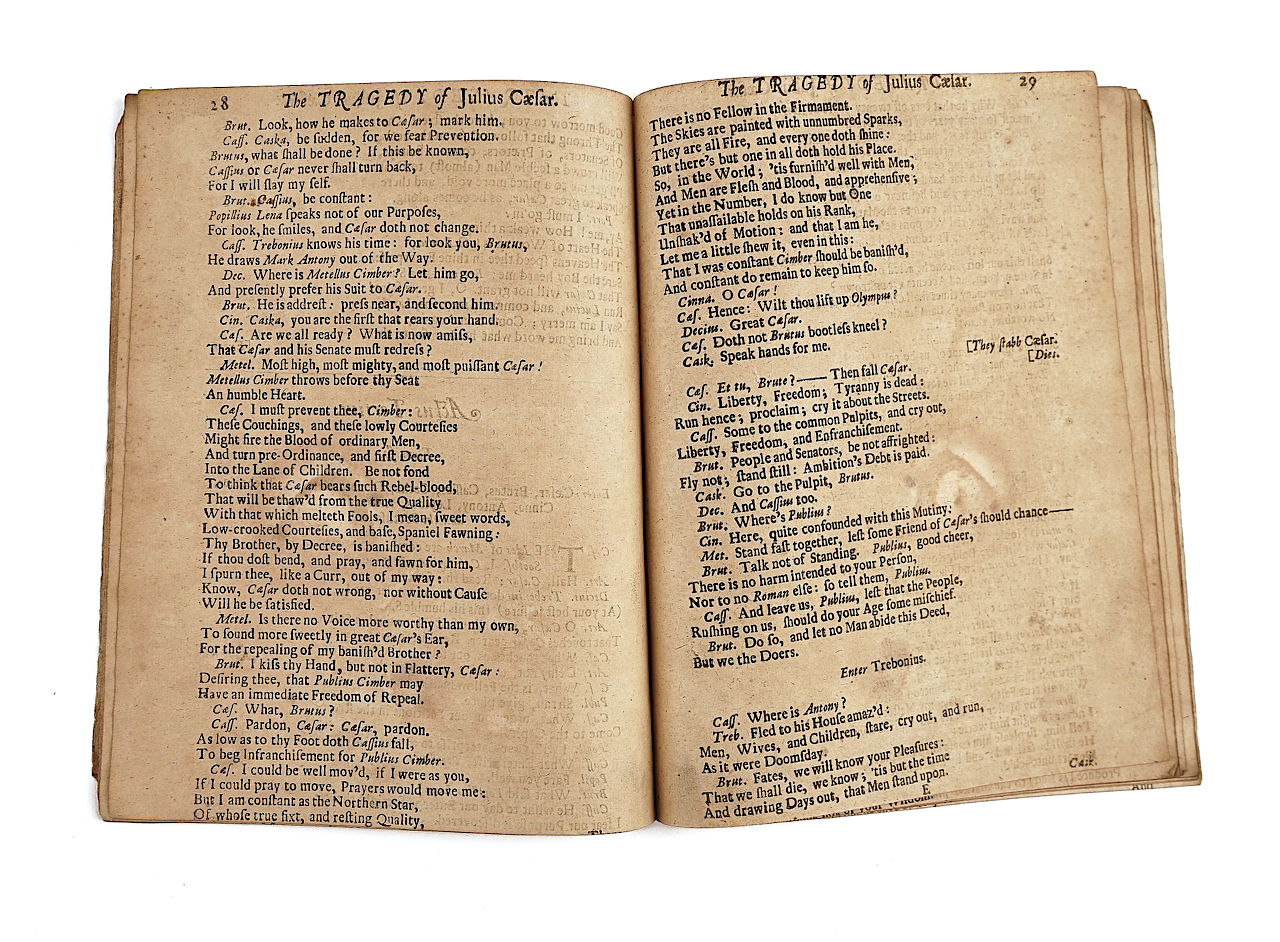 28 The TRAGEDY of Julius Cæſar.
Brut. Look, how he makes to Cæſar; mark him.
Caſſ. Caska, be ſudden, for we fear Prevention.
Brutus, what ſhall be done? If this be known,
Caſſius or Cæſar never ſhall turn back,
For I will ſlay my ſelf.
Brut. Caſſius, be conſtant:
Popillius Lena ſpeaks not of our Purpoſes,
For look, he ſmiles, and Cæſar doth not change.
Caſſ. Trebonius knows his time: for look you, Brutus,
He draws Mark Antony out of the Way.
Dec. Where is Metellus Cimber? Let him go,
And preſently prefer his Suit to Cæſar.
Brut. He is addreſt: preſs near, and ſecond him.
Cin. Caska, you are the firſt that rears your hand.
Cæſ. Are we all ready? What is now amiſs,
That Cæſar and his Senate muſt redreſs?
Metel. Moſt high, moſt mighty, and moſt puiſſant Cæſar!
Metellus Cimber throws before thy Seat
An humble Heart.
Cæſ. I muſt prevent thee, Cimber:
Theſe Couchings, and theſe lowly Courteſies
Might fire the Blood of ordinary Men,
And turn pre-Ordinance, and firſt Decree,
Into the Lane of Children. Be not fond
To think that Cæſar bears ſuch Rebel-blood,
That will be thaw'd from the true Quality
With that which melteth Fools, I mean, ſweet words,
Low-crooked Courteſies, and baſe, Spaniel Fawning:
Thy Brother, by Decree, is baniſhed:
If thou doſt bend, and pray, and fawn for him,
I ſpurn thee, like a Curr, out of my way:
Know, Cæſar doth not wrong, nor without Cauſe
Will he be ſatisfied.
Metel. Is there no Voice more worthy than my own,
To ſound more ſweetly in great Cæſar's Ear,
For the repealing of my baniſh'd Brother?
Brut. I kiſs thy Hand, but not in Flattery, Cæſar:
Deſiring thee, that Publius Cimber may
Have an immediate Freedom of Repeal.
Cæſ. What, Brutus?
Caſſ. Pardon, Cæſar: Cæſar, pardon.
As low as to thy Foot doth Caſſius fall,
To beg Infranchiſement for Publius Cimber.
Cæſ. I could be well mov'd, if I were as you,
If I could pray to move, Prayers would move me:
But I am conſtant as the Northern Star,
Of whoſe true fixt, and reſting Quality,
The TRAGEDY of Julius Cæſar. 29
There is no Fellow in the Firmament.
The Skies are painted with unnumbred Sparks,
They are all Fire, and every one doth ſhine:
But there's but one in all doth hold his Place.
So, in the World; 'tis furniſh'd well with Men,
And Men are Fleſh and Blood, and apprehenſive;
Yet in the Number, I do know but One
That unaſſailable holds on his Rank,
Unſhak'd of Motion: and that I am he,
Let me a little ſhew it, even in this:
That I was conſtant Cimber ſhould be baniſh'd,
And conſtant do remain to keep him ſo.
Cinna. O Cæſar!
Cæſ. Hence: Wilt thou lift up Olympus?
Decius. Great Cæſar.
Cæſ. Doth not Brutus bootleſs kneel?
Cask. Speak hands for me.
[They ſtabb Cæſar.
Cæſ. Et tu, Brute?—— Then fall Cæſar. [Dies.
Cin. Liberty, Freedom; Tyranny is dead:
Run hence; proclaim; cry it about the Streets.
Caſſ. Some to the common Pulpits, and cry out,
Liberty, Freedom, and Enfranchiſement.
Brut. People and Senators, be not affrighted:
Fly not; ſtand ſtill: Ambition's Debt is paid.
Cask. Go to the Pulpit, Brutus.
Dec. And Caſſius too.
Brut. Where's Publius?
Cin. Here, quite confounded with this Mutiny.
Met. Stand faſt together, leſt ſome Friend of Cæſar's ſhould chance——
Brut. Talk not of Standing. Publius, good cheer,
There is no harm intended to your Perſon,
Nor to no Roman elſe: ſo tell them, Publius.
Caſſ. And leave us, Publius, leſt that the People,
Ruſhing on us, ſhould do your Age ſome miſchief.
Brut. Do ſo, and let no Man abide this Deed,
But we the Doers.
Enter Trebonius.
Caſſ. Where is Antony?
Treb. Fled to his Houſe amaz'd:
Men, Wives, and Children, ſtare, cry out, and run,
As it were Doomſday.
Brut. Fates, we will know your Pleaſures:
That we ſhall die, we know; 'tis but the time
And drawing Days out, that Men ſtand upon.
E Cask.